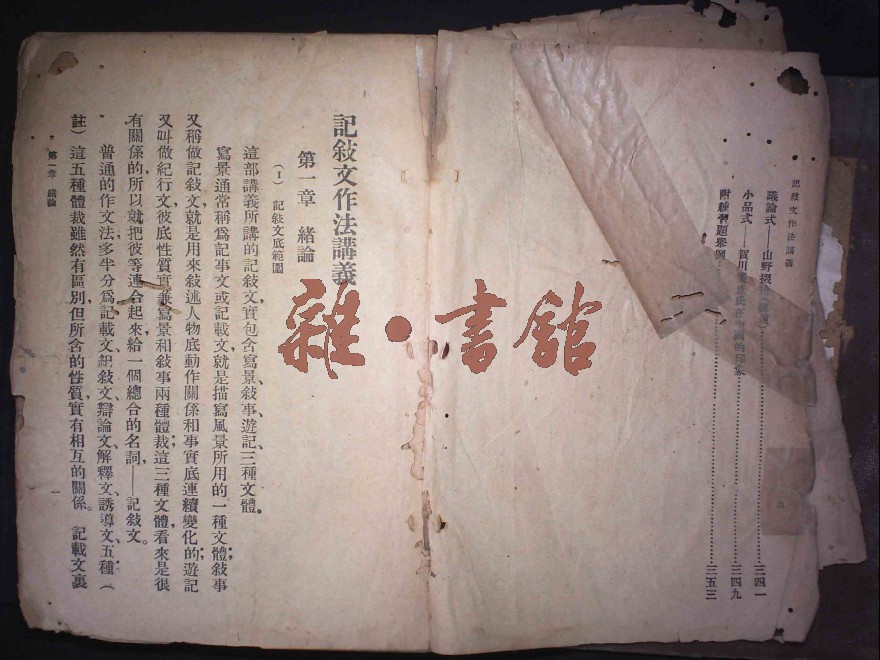 記敍文作法講義
議論式——山野掇拾
小品式——賀川
三四一
三四九
附練習題舉例
三五三
記敍文作法講義
第一章　緒論
（I）　記敍文底範圍
這部講義所講的記敍文，實包含寫景、敍事、遊記、三種文體。
寫景通常稱爲記事文或記載文，就是描寫風景所用的一種文體；敍事
又稱做記敍文，就是用來敍述人物底動作關係和事實底連續變化的；遊記
又叫做紀行文，彼底性質實兼寫景和敍事兩種體裁；這三種文體看來是很
有關係的，所以就把彼等連合起來，給一個總合的名詞——記敍文。
普通的作文法，多半分爲記載文、記敍文、辯論文、解釋文、誘導文、五種（
註）這五種體裁雖然有區別，但所含的性質，實有相互的關係。記載文裏
第一章　緒論
一
雜・書館